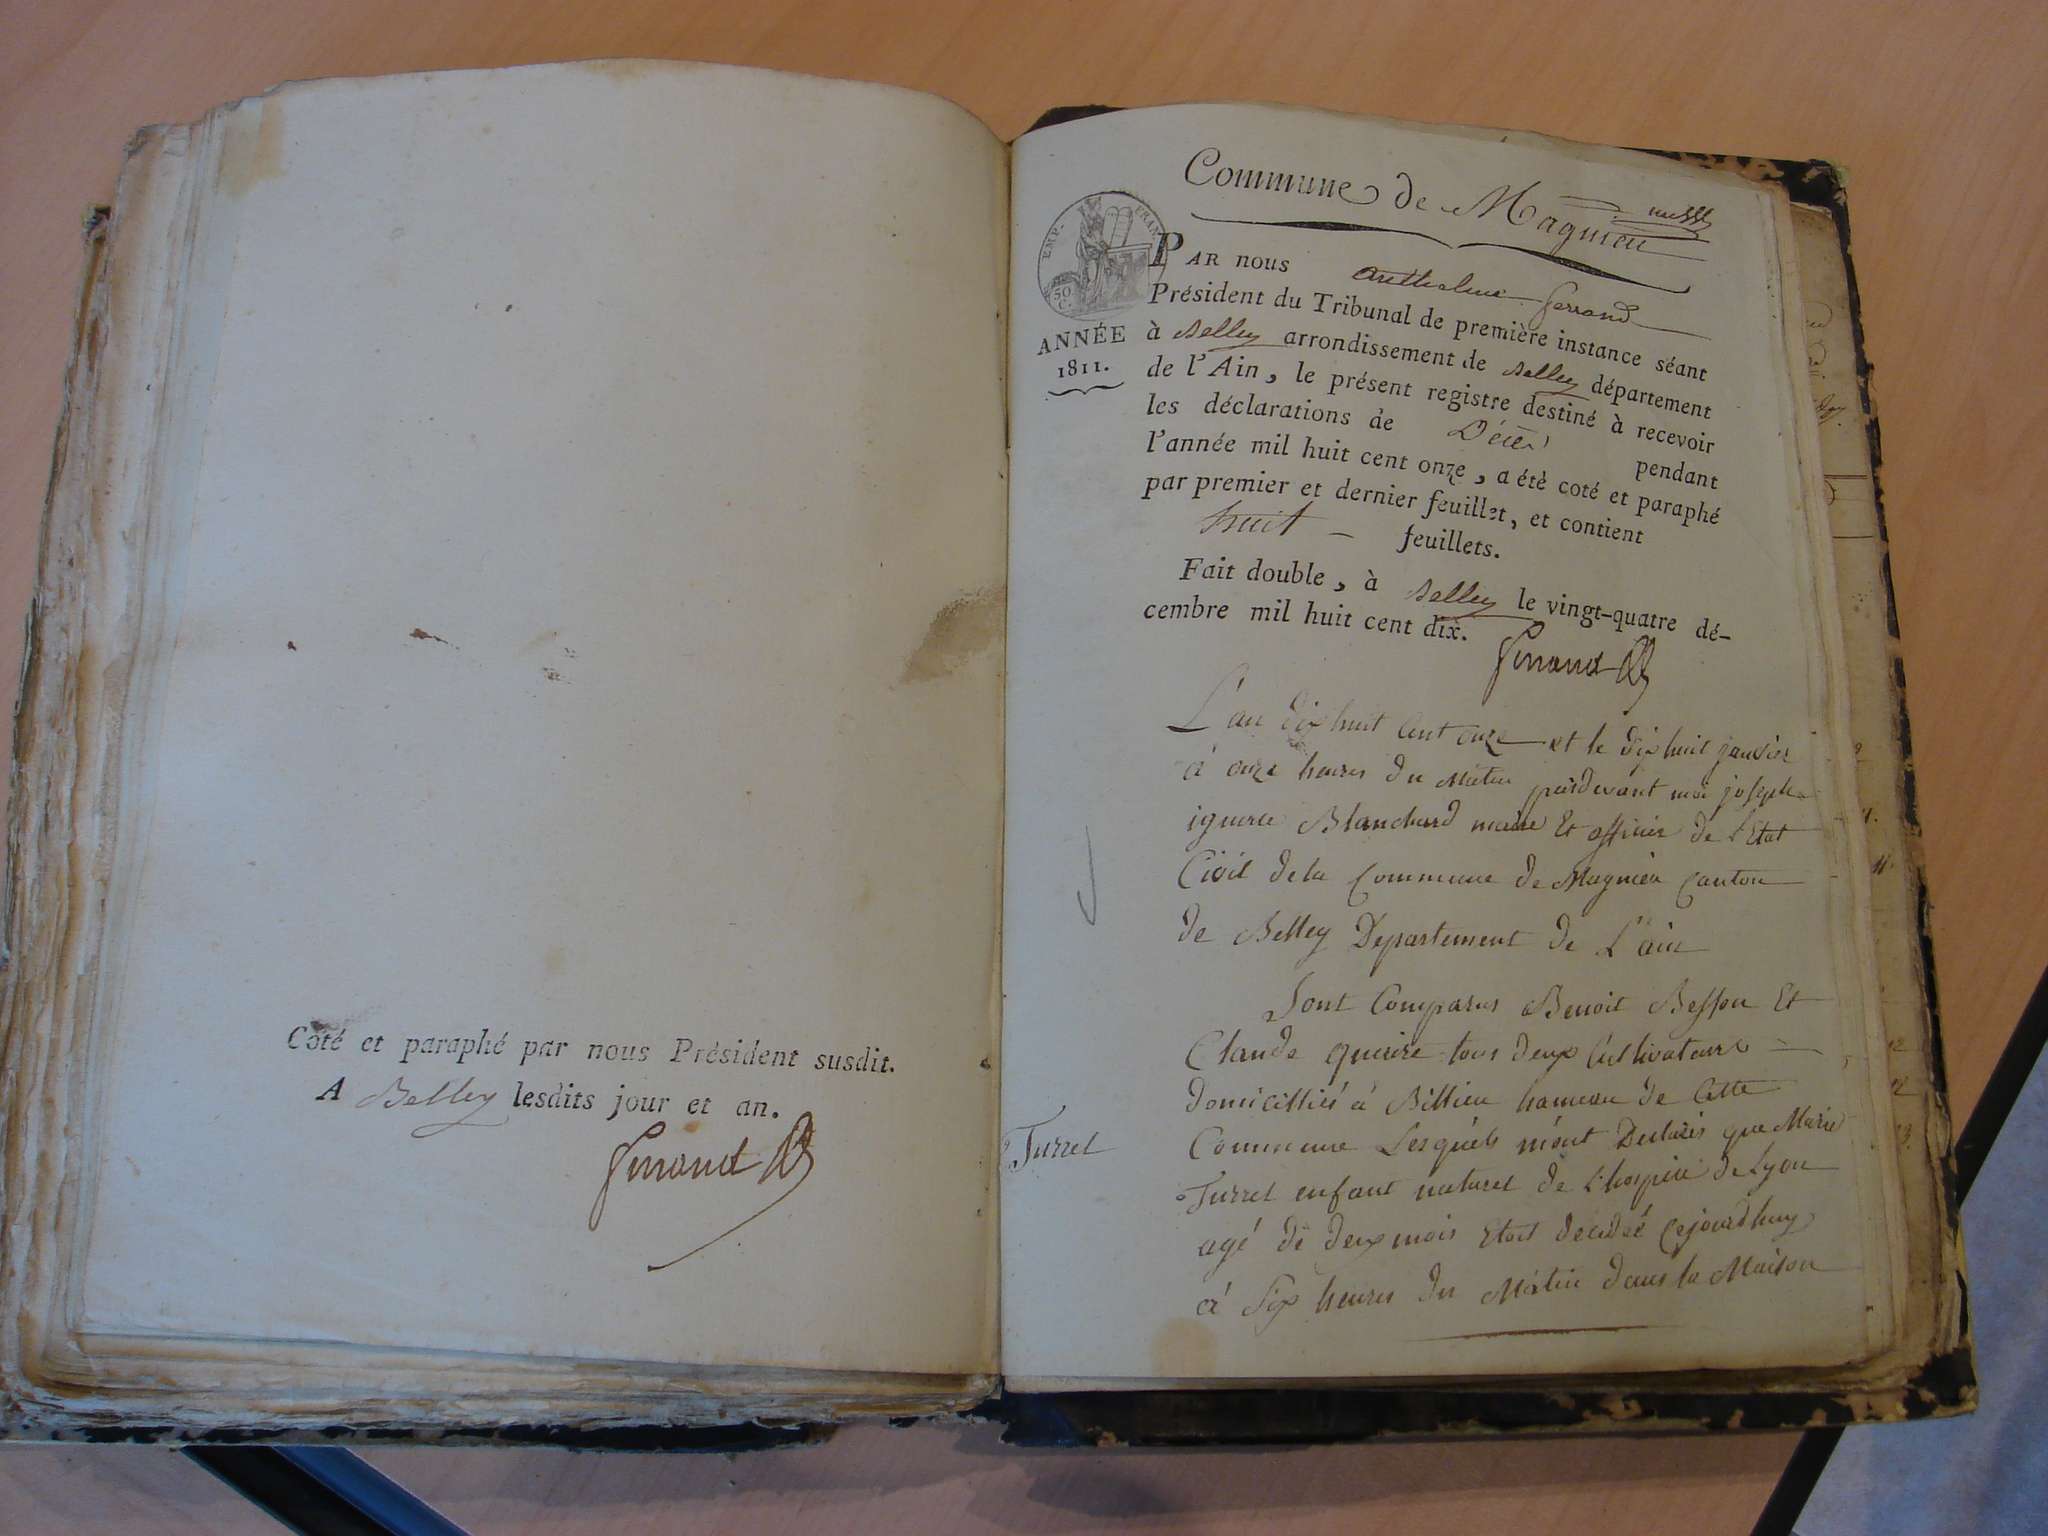 Coté et paraphé par nous Président susdit.
A Belley lesdits jour et an.
Commune de Magnieu
EMP. FRAN.
50 C.
ANNÉE
1811.
PAR nous Anthelme Ferrand
Président du Tribunal de première instance séant
à Belley arrondissement de Belley département
de l'Ain, le présent registre destiné à recevoir
les déclarations de Décès pendant
l'année mil huit cent onze, a été coté et paraphé
par premier et dernier feuillet, et contient
huit feuillets.
Fait double, à Belley le vingt-quatre dé-
cembre mil huit cent dix.
L'an dix huit Cent onze et le dix huit janvier
à onze heures du Matin pardevant moi joseph
ignace Blanchard maire Et officier de l'Etat
Civil de la Commune de Magnieu Canton
de Belley Departement de L'ain
Sont Comparus Benoit Besson Et
Claude tous deux Cultivateurs
domicilliés à Billieu hameau de Cette
Turrel
Commune Lesquels m'ont Declarés que Marie
Turrel enfant naturel de L'hospice de Lyon
agé de deux mois etoit decedé Cejourdhuy
à Six heures du Matin dans la Maison